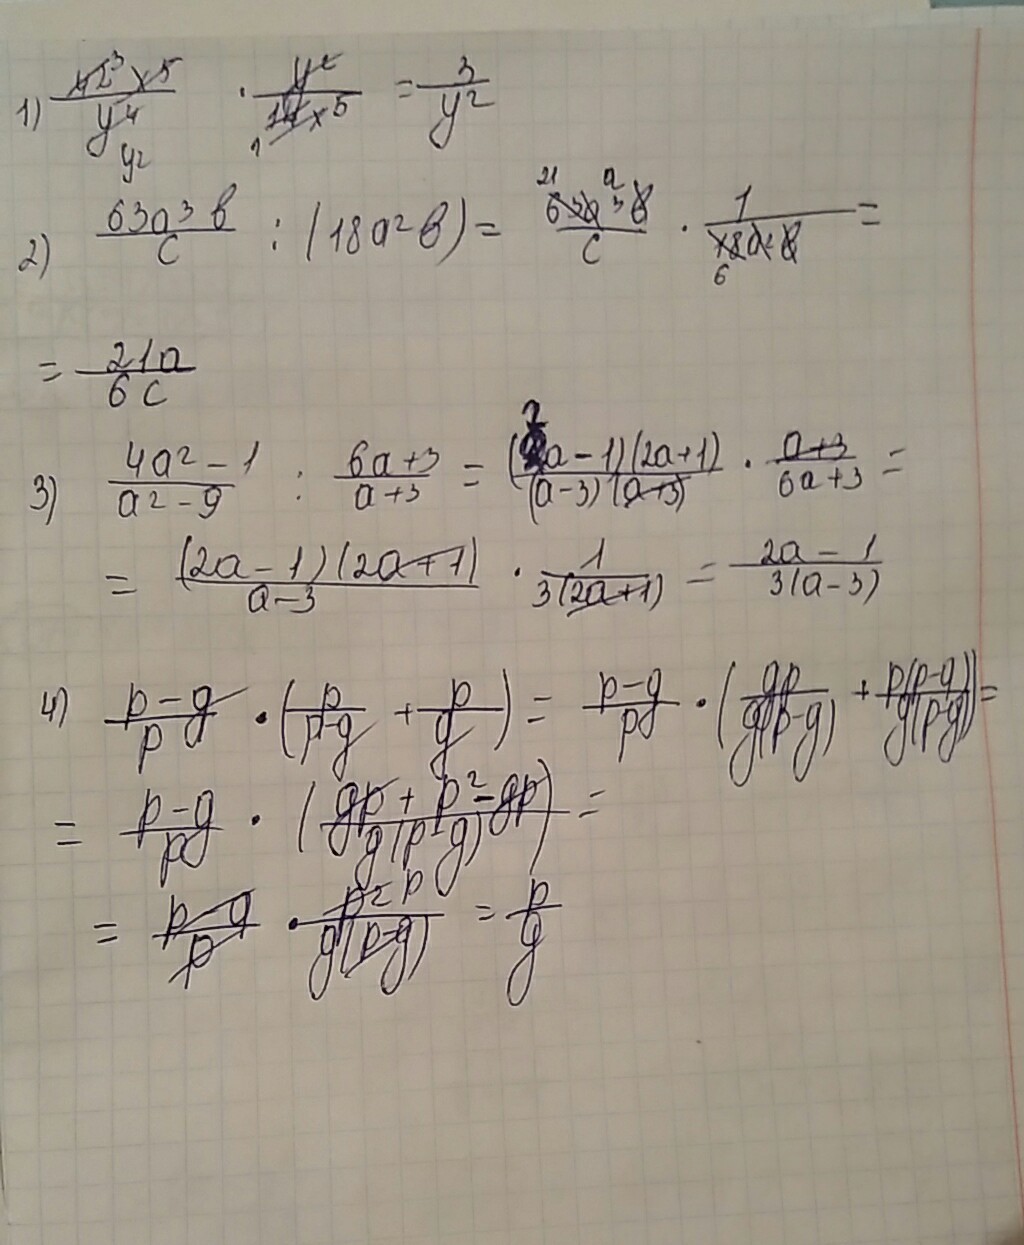 1) 42³x⁵/y⁴ · y²/14x⁵ = 3/y²
2) 63a³b/c : (18a²b) = 63a³b/c · 1/18a²b =
= 21a/6c
3) 4a²-1/a²-9 : 6a+3/a+3 = (2a-1)(2a+1)/(a-3)(a+3) · a+3/6a+3 =
= (2a-1)(2a+1)/a-3 · 1/3(2a+1) = 2a-1/3(a-3)
4) p-g/p · (p/p-g + p/g) = p-g/p · (gp/g(p-g) + p(p-g)/g(p-g)) =
= p-g/p · (gp+p²-gp/g(p-g)) =
= p-g/p · p²/g(p-g) = p/g